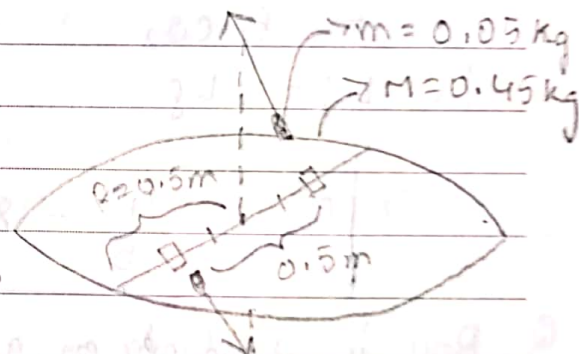 m = 0.05 kg
M = 0.45 kg
R = 0.5m
0.5m